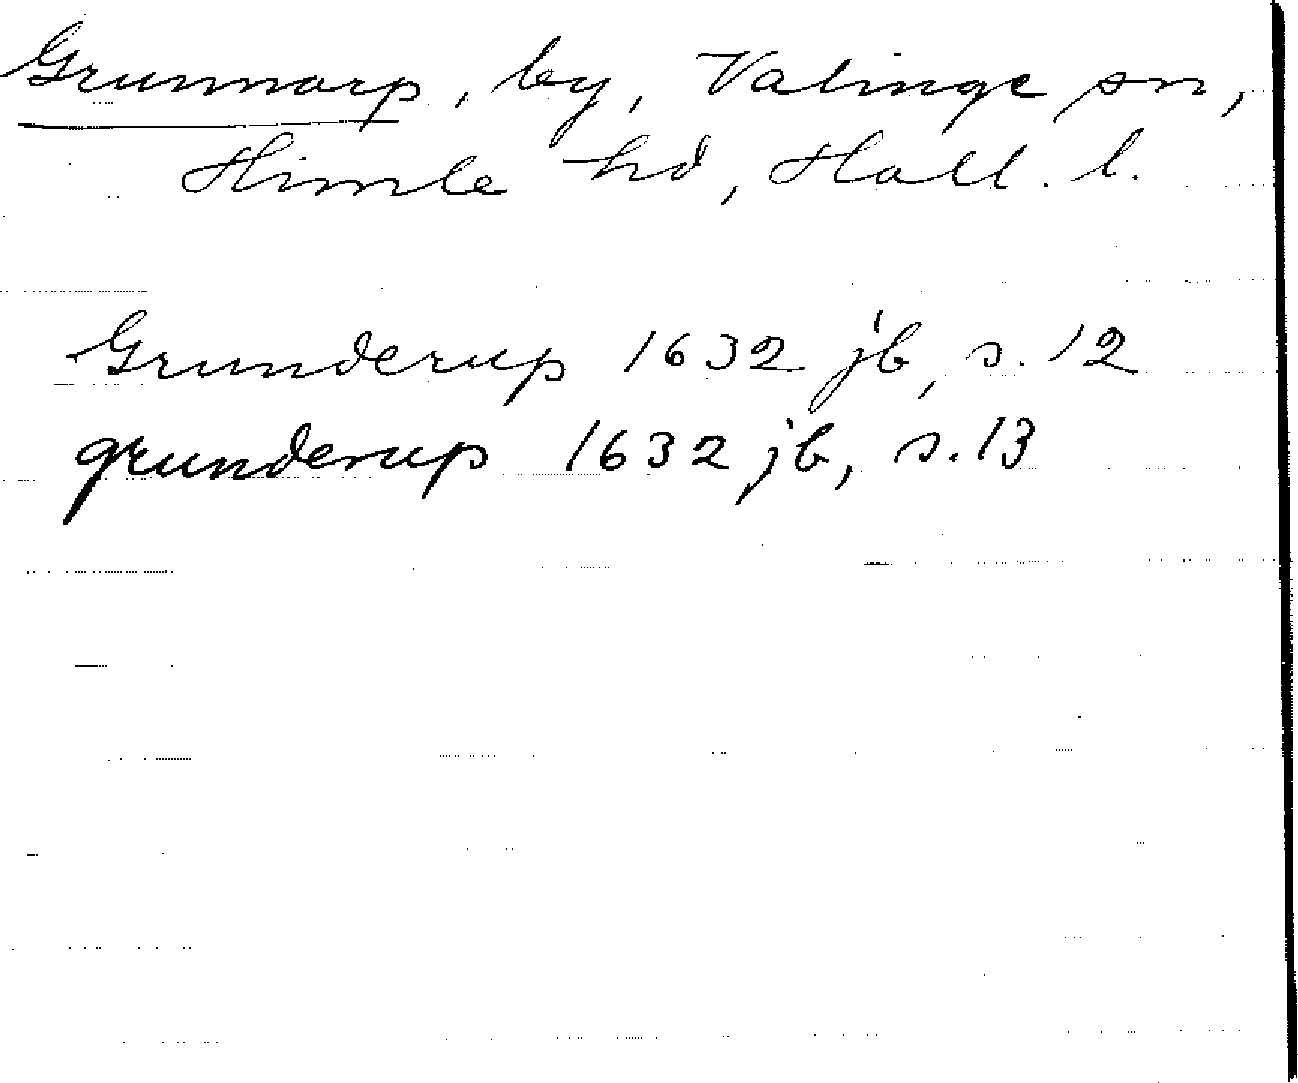 Grunnarp, by, Valinge sn,
Himle hd, Hall. l.
Grunderup 1632 jb, s. 12
grunderup 1632 jb, s. 13